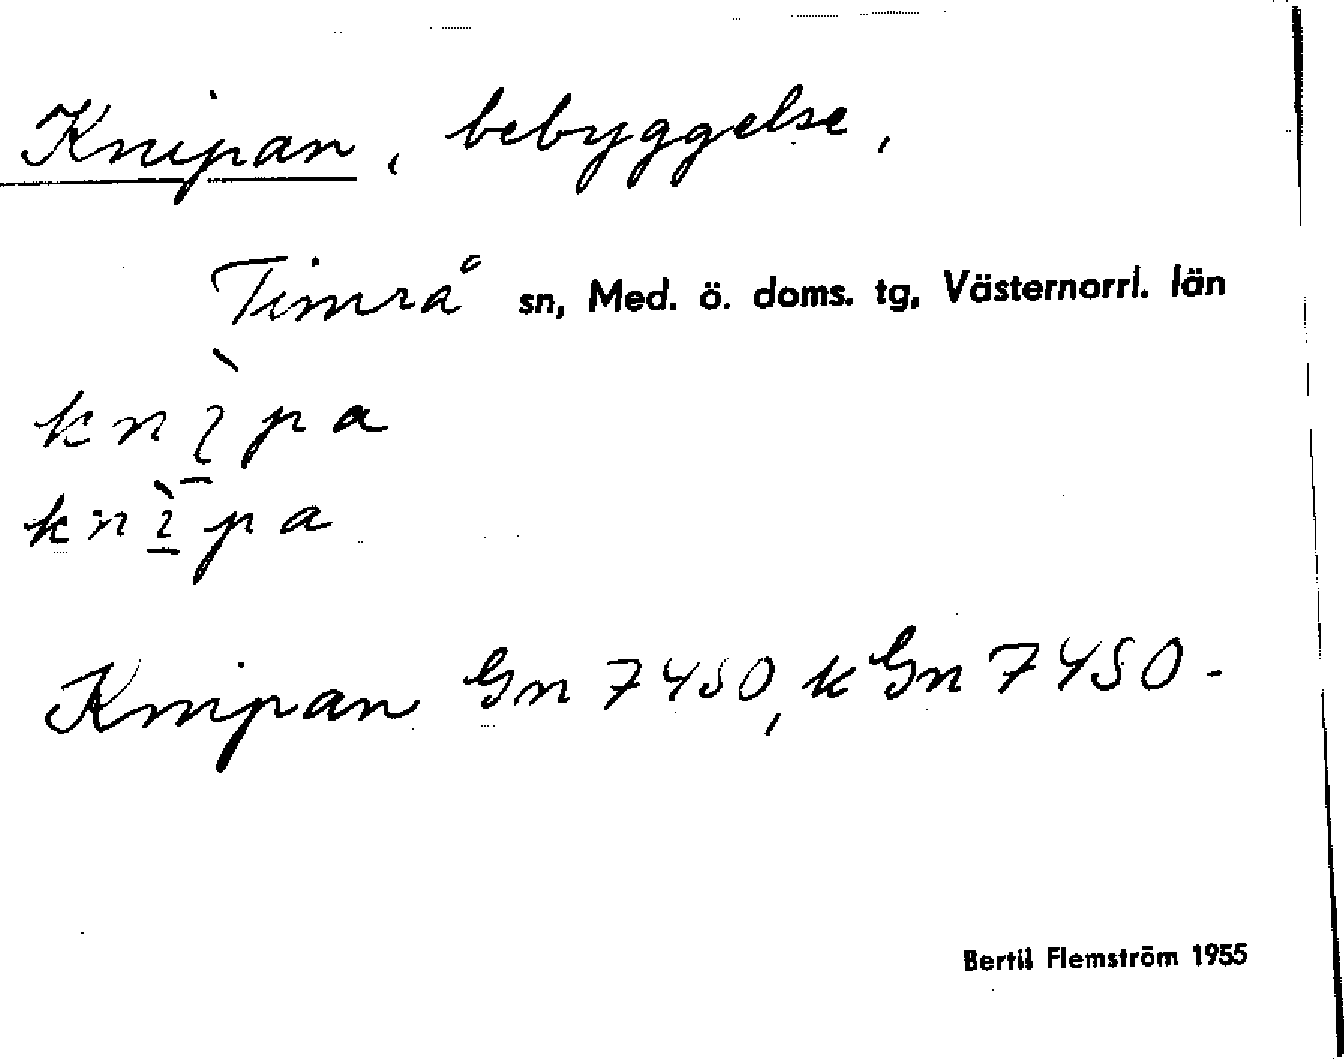 Knipan, bebyggelse,
Timrå sn, Med. ö. doms. tg, Västernorrl. län
knì̱pa
knì̱pa
Knipan Gn 7450, k Gn 7450 -
Bertil Flemström 1955